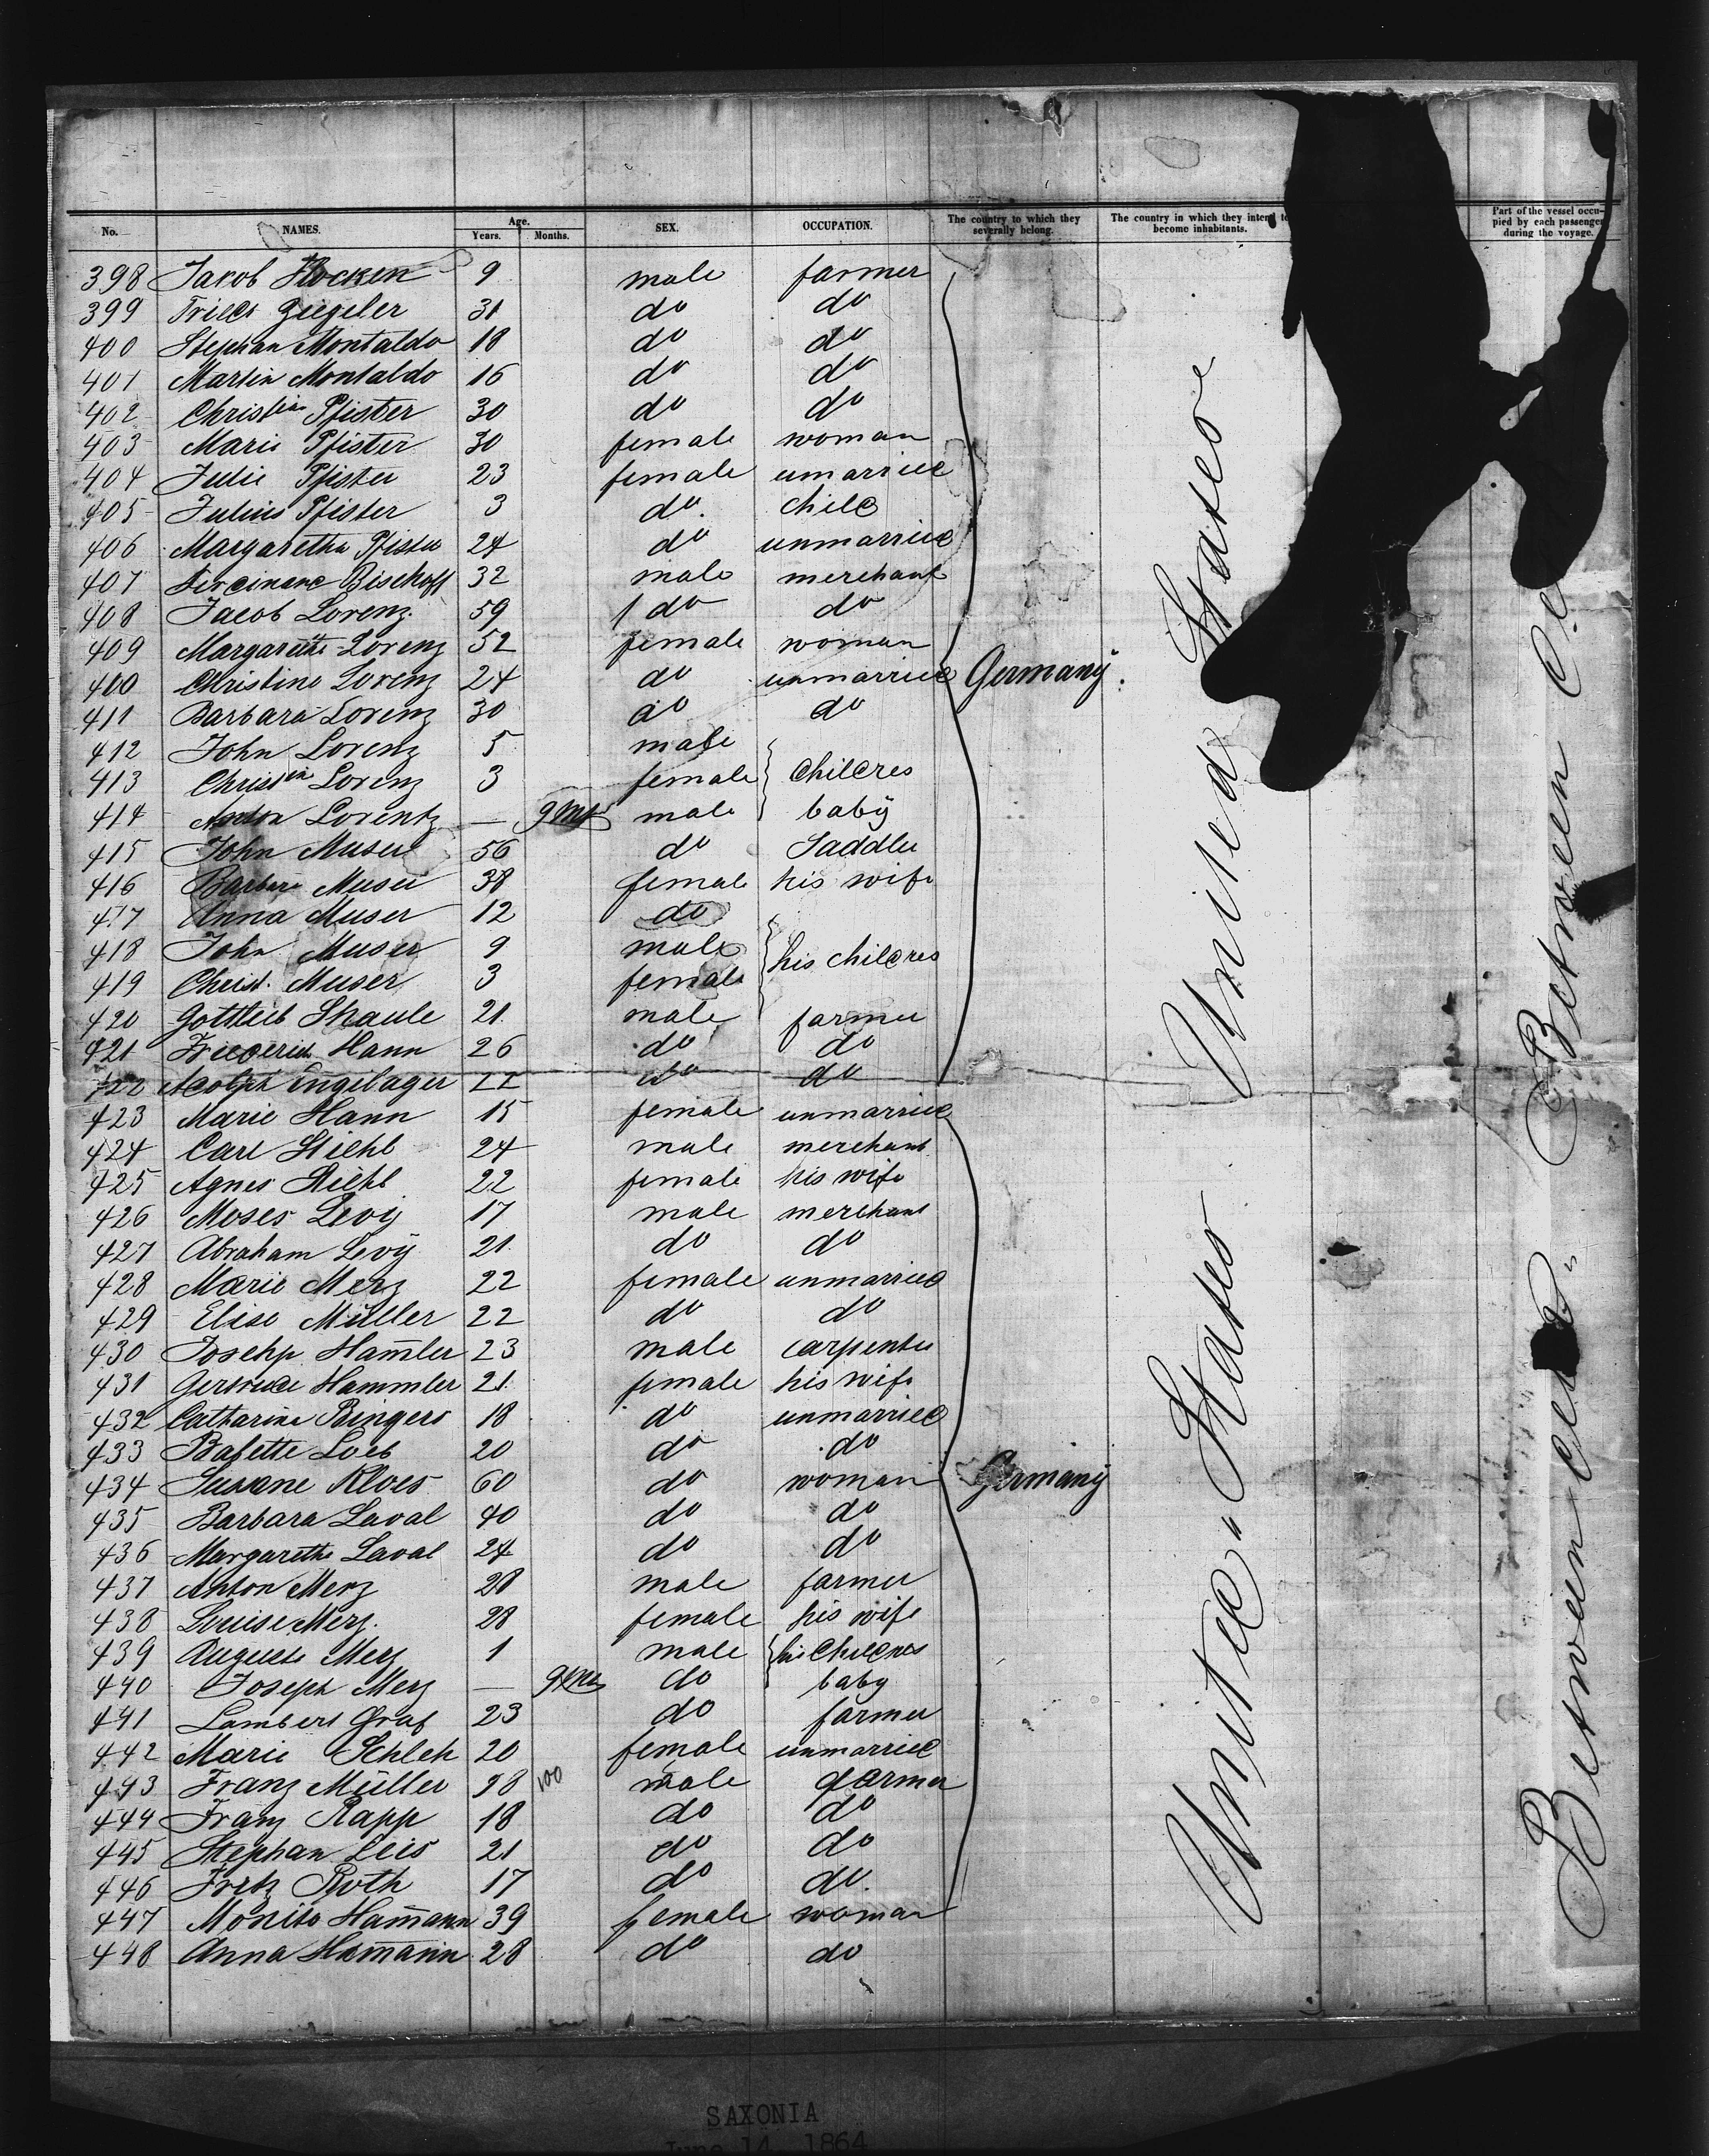 No. NAMES. Age. Years. Months. SEX. OCCUPATION. The country to which they severally belong. The country in which they intend to become inhabitants. Part of the vessel occupied by each passenger during the voyage.
398 Jacob 9 male farmer
399 Ziegeler 31 do do
400 Stephan Montaldo 18 do do
401 Martin Montaldo 16 do do
402 Christian Pfister 30 do do
403 Marie Pfister 30 female woman
404 Julie Pfister 23 female unmarried
405 Julius Pfister 3 do. child
406 Margaretha Pfister 24 do unmarried
407 Ferdinand Bischoff 32 male merchant
408 Jacob Lorenz 59 do do
409 Margarethe Lorenz 52 female woman
400 Christine Lorenz 24 do unmarried Germany.
411 Barbara Lorenz 30 do do
412 John Lorenz 5 male
413 Christin Lorenz 3 female Childres
414 Anton Lorentz — 9 mts male baby
415 John Muser 56 do Saddler
416 Barbara Muser 38 female his wife
417 Anna Muser 12 do
418 John Muser 9 male his childres
419 Christ. Muser 3 female
420 Gottlieb Shaule 21 male farmer
421 Frederich Hann 26 do do
422 Adolph Engilager 22 do do
423 Marie Hann 15 female unmarried
424 Carl Stiehl 24 male merchant
425 Agnes Stiehl 22 female his wife
426 Moses Levy 17 male merchant
427 Abraham Levy 21 do do
428 Marie Merz 22 female unmarried
429 Elise Müller 22 do do
430 Josehp Ham̅ler 23 male carpenter
431 Gertrude Hammler 21 female his wife
432 Catharina Bingers 18 do unmarried
433 Babette Loeb 20 do do
434 Susane Kloes 60 do woman Germany
435 Barbara Laval 40 do do
436 Margarethe Laval 24 do do
437 Anton Merz 28 male farmer
438 Louise Merz. 28 female his wife
439 Auguste Merz 1 male his Childres
440 Joseph Merz — 9 mts do baby
441 Lambert Graf 23 do farmer
442 Marie Schleh 20 female unmarried
443 Franz Müller 98 100 male farmer
444 Franz Rapp 18 do do
445 Stephan Leis 21 do do
446 Fritz Roth 17 do do.
447 Ham̅ann 39 female woman
448 Anna Ham̅ann 28 do do
United States
United States
Between
Between
SAXONIA
June 14, 1864